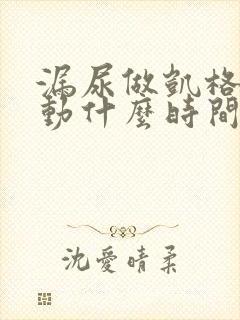 漏尿做凱格
動什麼時間
沈愛晴柔